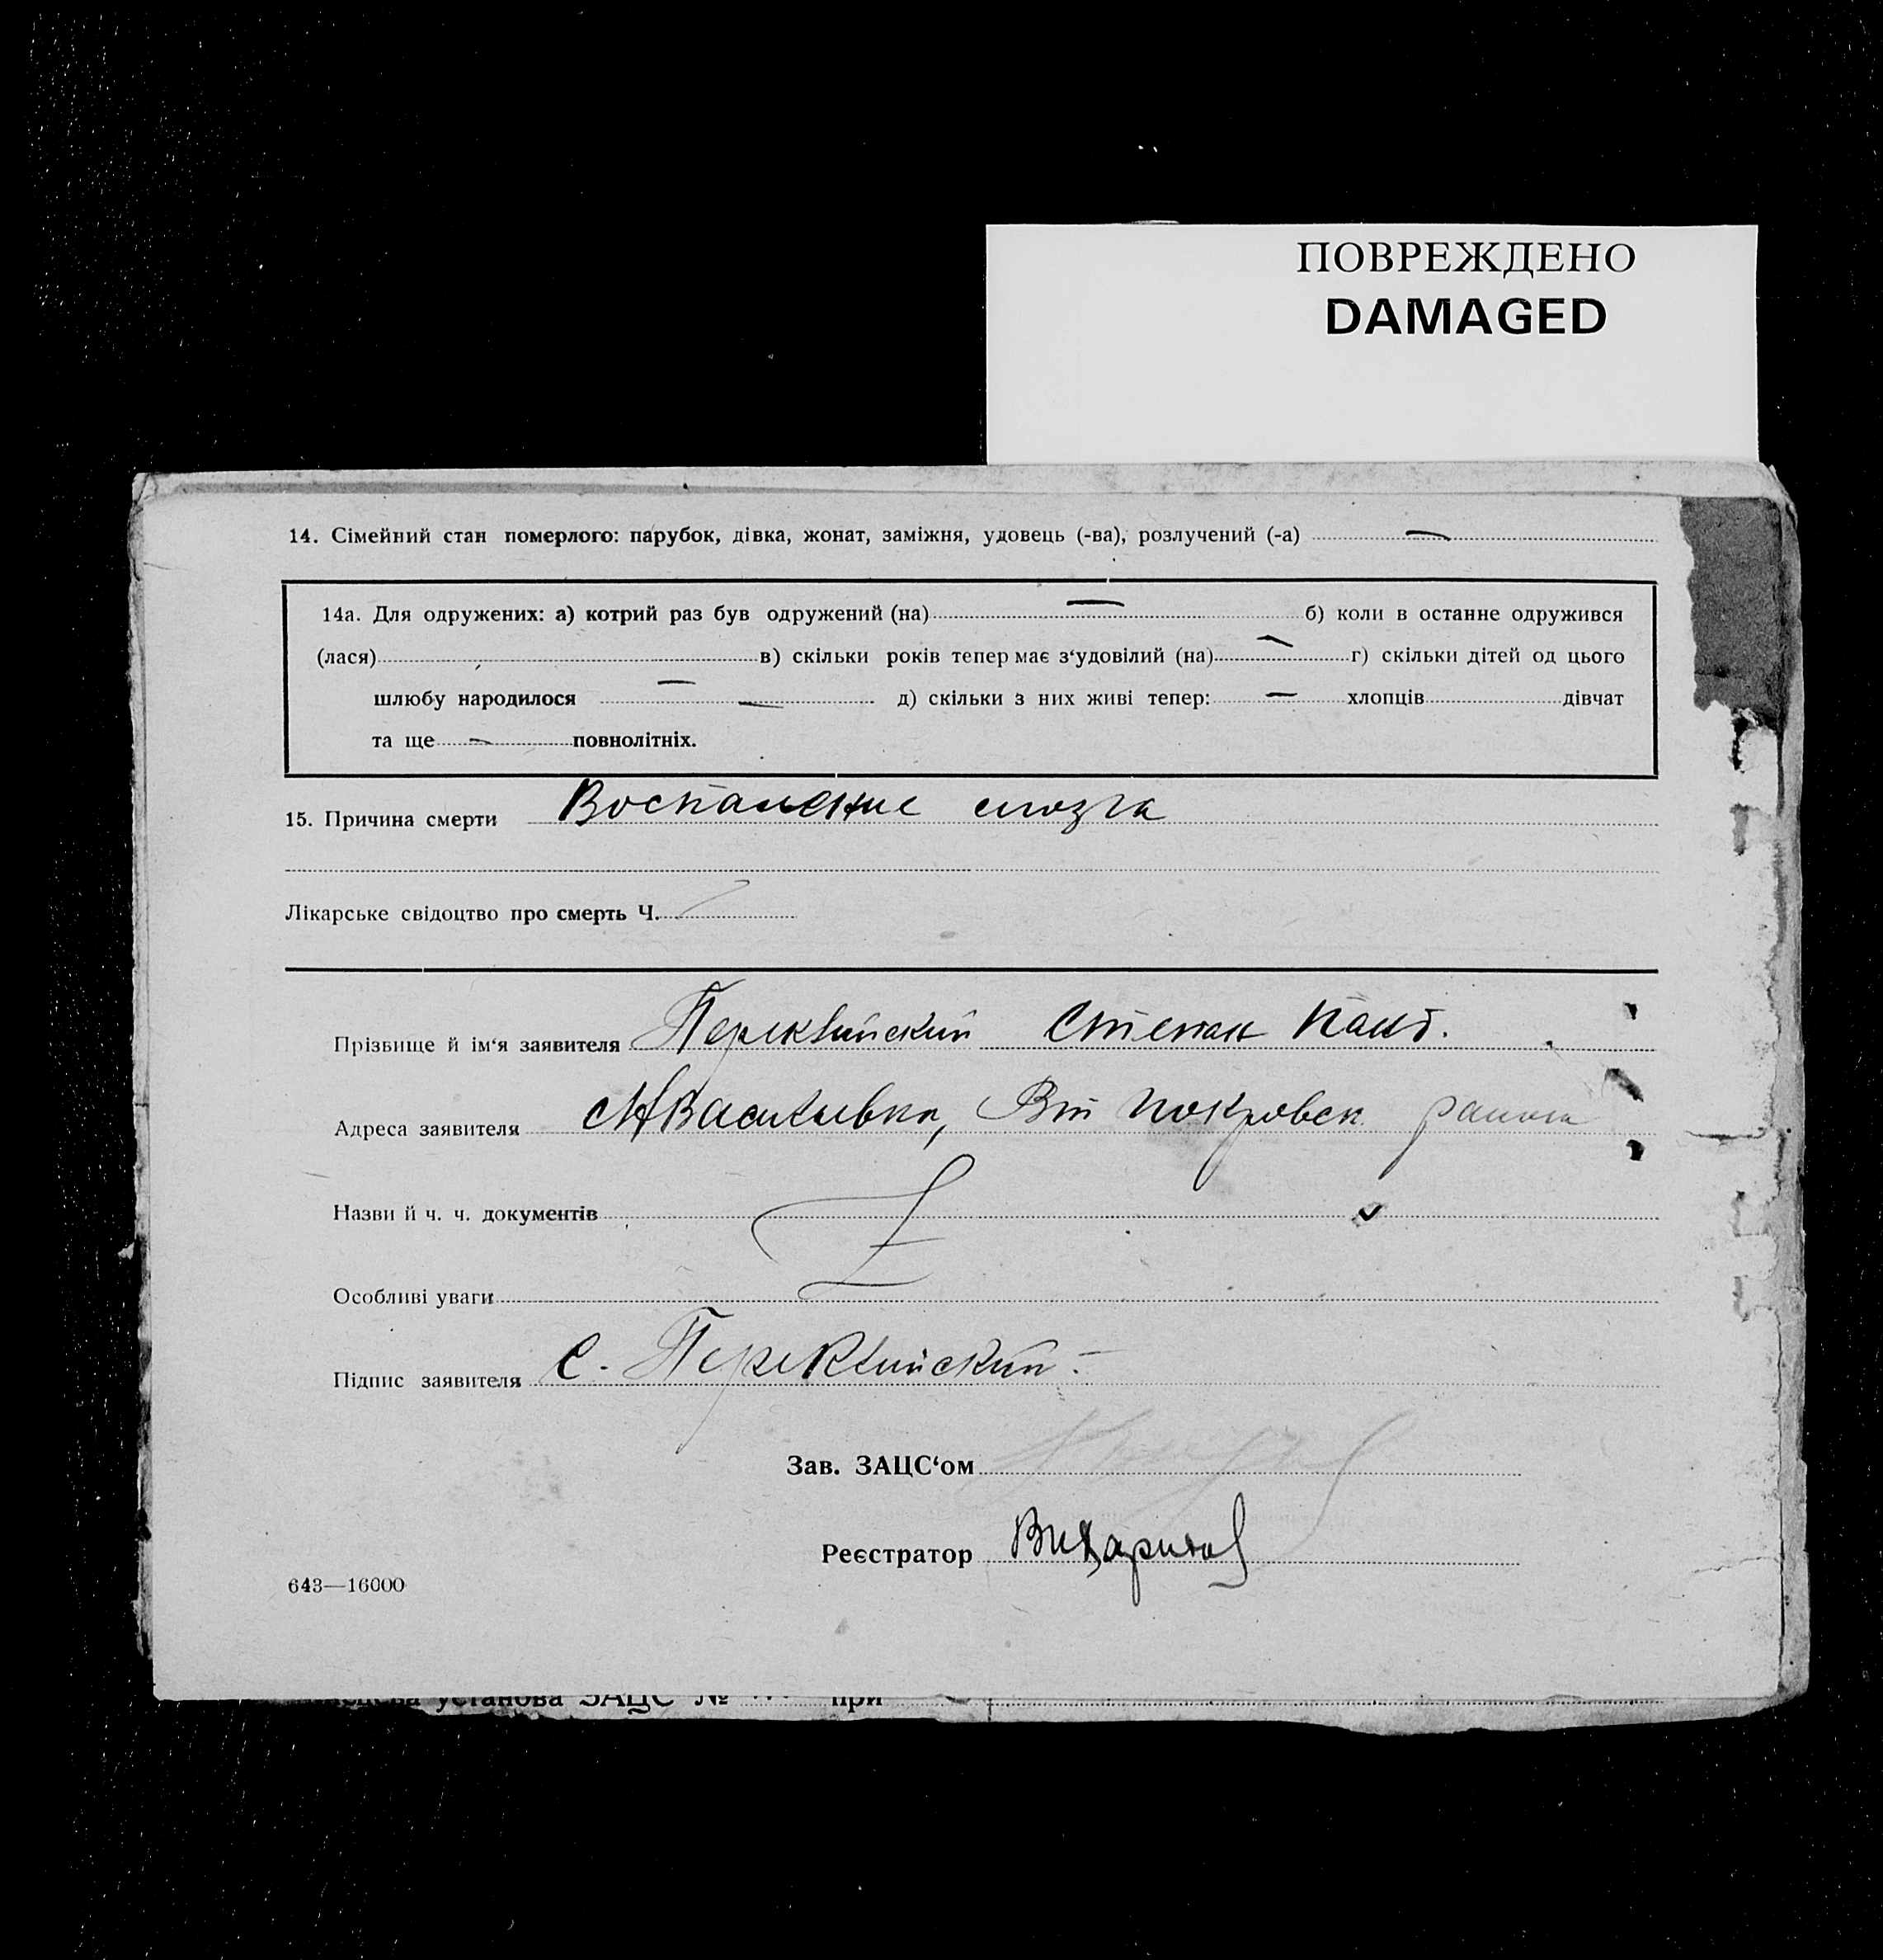 ПОВРЕЖДЕНО
DAMAGED
14. Сімейний стан померлого: парубок, дівка, жонат, заміжня, удовець (-ва), розлучений (-а) —
14а. Для одружених: а) котрий раз був одружений (на) — б) коли в останне одружився
(лася) в) скільки років тепер має з‘удовілий (на) — г) скільки дітей од цього
шлюбу народилося — — д) скільки з них живі тепер: — хлопців дівчат
та ще — повнолітніх.
15. Причина смерти Воспаление мозга
Лікарське свідоцтво про смерть Ч.
Прізвище й ім‘я заявителя Степан
Адреса заявителя Покровск района
Назви й ч. ч. документів
Особливі уваги
Підпис заявителя С.
Зав. ЗАЦС‘ом
Реєстратор
643—16000
установа ЗАЦС № при